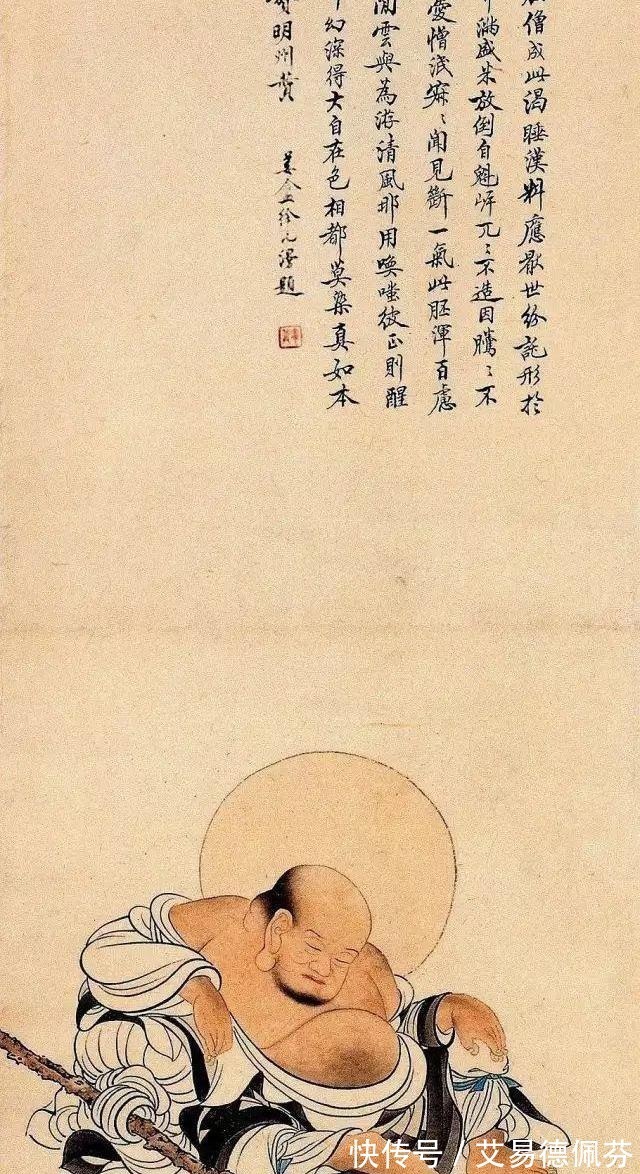 僧成此渴睡漢料應厭世紛託形於
滿盛朱放倒自魁岸兀〻不造因騰〻不
愛憎泯寂〻聞見斷一氣此胚渾百慮
閒雲與為游清風那用喚嗤彼正則醒
幻深得大自在色相都莫染真如本
明州贊
姜金上徐元潔題
快传号 / 艾易德佩芬